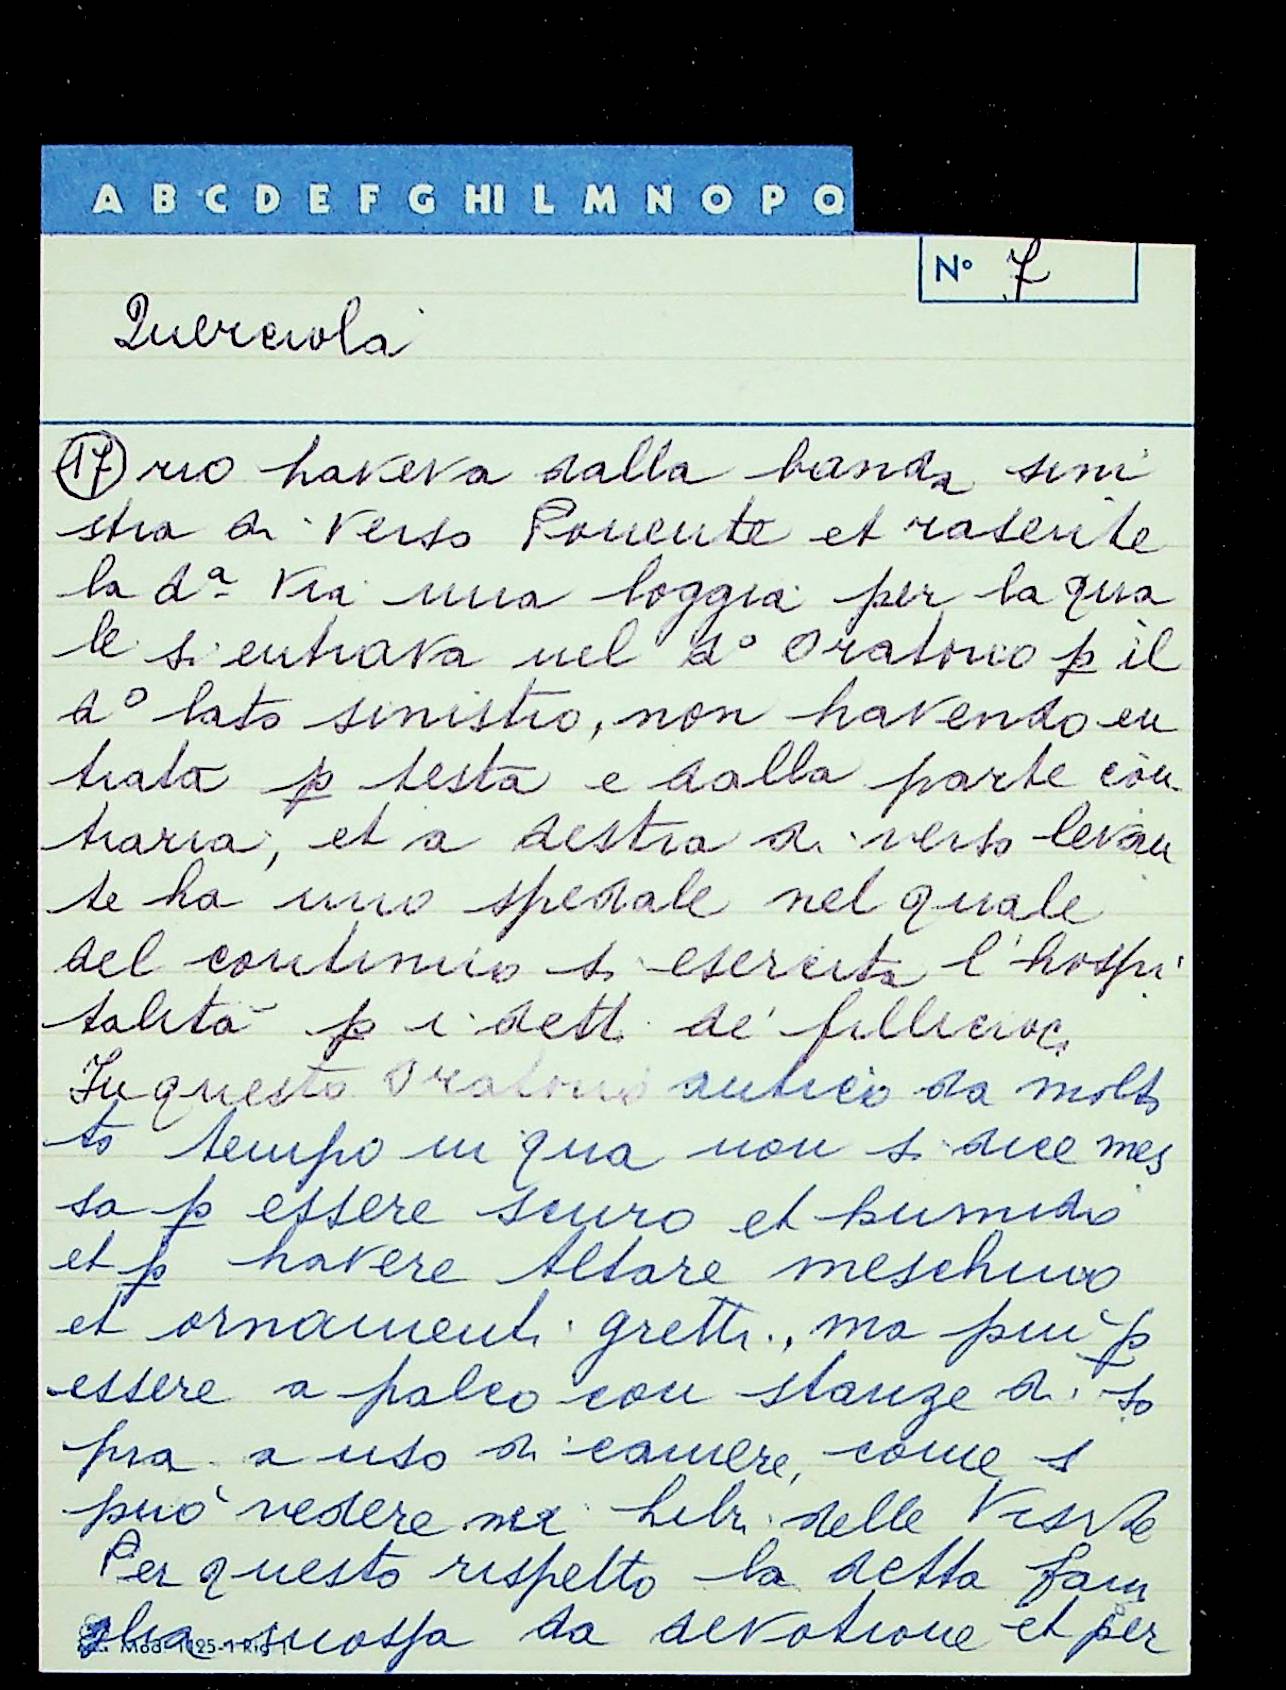 A B C D E F G H I L M N O P Q
N° 7
Querciola
17 rio haveva dalla banda sini
stra di verso Ponente et rasente
la dª Via una loggia per la qua
le si entrava nel d° Oratorio p il
d° lato sinistro, non havendo en
trata p testa e dalla parte con
traria, et a destra di verso levan
te ha uno spedale nel quale
del continuo si esercita l'hospi
talità p i detti de' fillicioc.
In questo Oratorio antico da molt
to tempo in qua non si dice mes
sa p essere scuro et humido
et p havere Altare meschino
et ornamenti gretti, ma più p
essere a palco con stanze di so
pra a uso di camere, come s
può vedere nei libri delle Visite
Per questo rispetto la detta fam
glia mossa da devotione et per
Mod. 1125-1 Rig 1